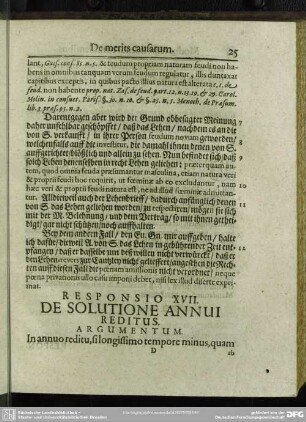 De meritis causarum. 25
lant, Gail. cons. 81 n. 5. & feudum propriam naturam feudi non ha-
bens in omnibus tanquam verum feudum regulatur, illis duntaxat
capitibus exceptis, in quibus pacto illius natura est alterata c. 1. de
feud. non habente prop. nat. Zas. de feud. part. 12. n. 12. 10. & 29. Carol.
Molin. in consuet. Paris. §. 30. n. 10. & §. 25. n. 5. Menoch. de Præsum.
lib. 3. præs. 95. n. 2.
Darentgegen aber wird der Grund obbesagter Meinung 7
daher unfehlbar geschöpfft / daß das Lehen / nachdem es an die
von S. verkaufft / in ihrer Person feudum novum geworden /
welchenfalls auff die investitur, die damahl ihnen denen von S.
auffgerichtet / blößlich und allein zu sehen. Nun befindet sich daß
solch Lehen darinn schon zu recht Lehen geliehen: præterquam au- 8
tem, quod omnia feuda præsumantur masculina, etiam natura veri
& proprii feudi hoc requirit, ut fœminæ ab eo excludantur, nam
hæc veri & proprii feudi natura est, ne ad illud fœminæ admittan- 9
tur. Alldieweil auch der Lehenbrieff / dadurch anfänglich denen 10
von S. das Lehen geliehen worden / zu respectiren / mögen sie sich
mit der M. Belehnung / und dem Vertrag / so mit ihnen gethei-
digt / gar nicht schützen / noch auffhalten.
Bey dem andern Fall / den Er. Gn. mir auffgeben / halte 11
ich dafür / dieweil A. von S. das Lehen in gebührender Zeit ent-
pfangen / daß er dasselbe um deßwillen nicht verwürckt / daß er
den Lehenrevers zur Cantzley nicht geliefert / angesehen die Rech-
ten auff diesen Fall die pœnam amissionis nicht verordnet / neque 12
pœna privationis ullo casu imponi debet, nisi lex illud diserte expri-
mat.
RESPONSIO XVII.
DE SOLUTIONE ANNUI
REDITUS.
ARGUMENTUM.
In annuo reditu, si longissimo tempore minus, quam
D ab